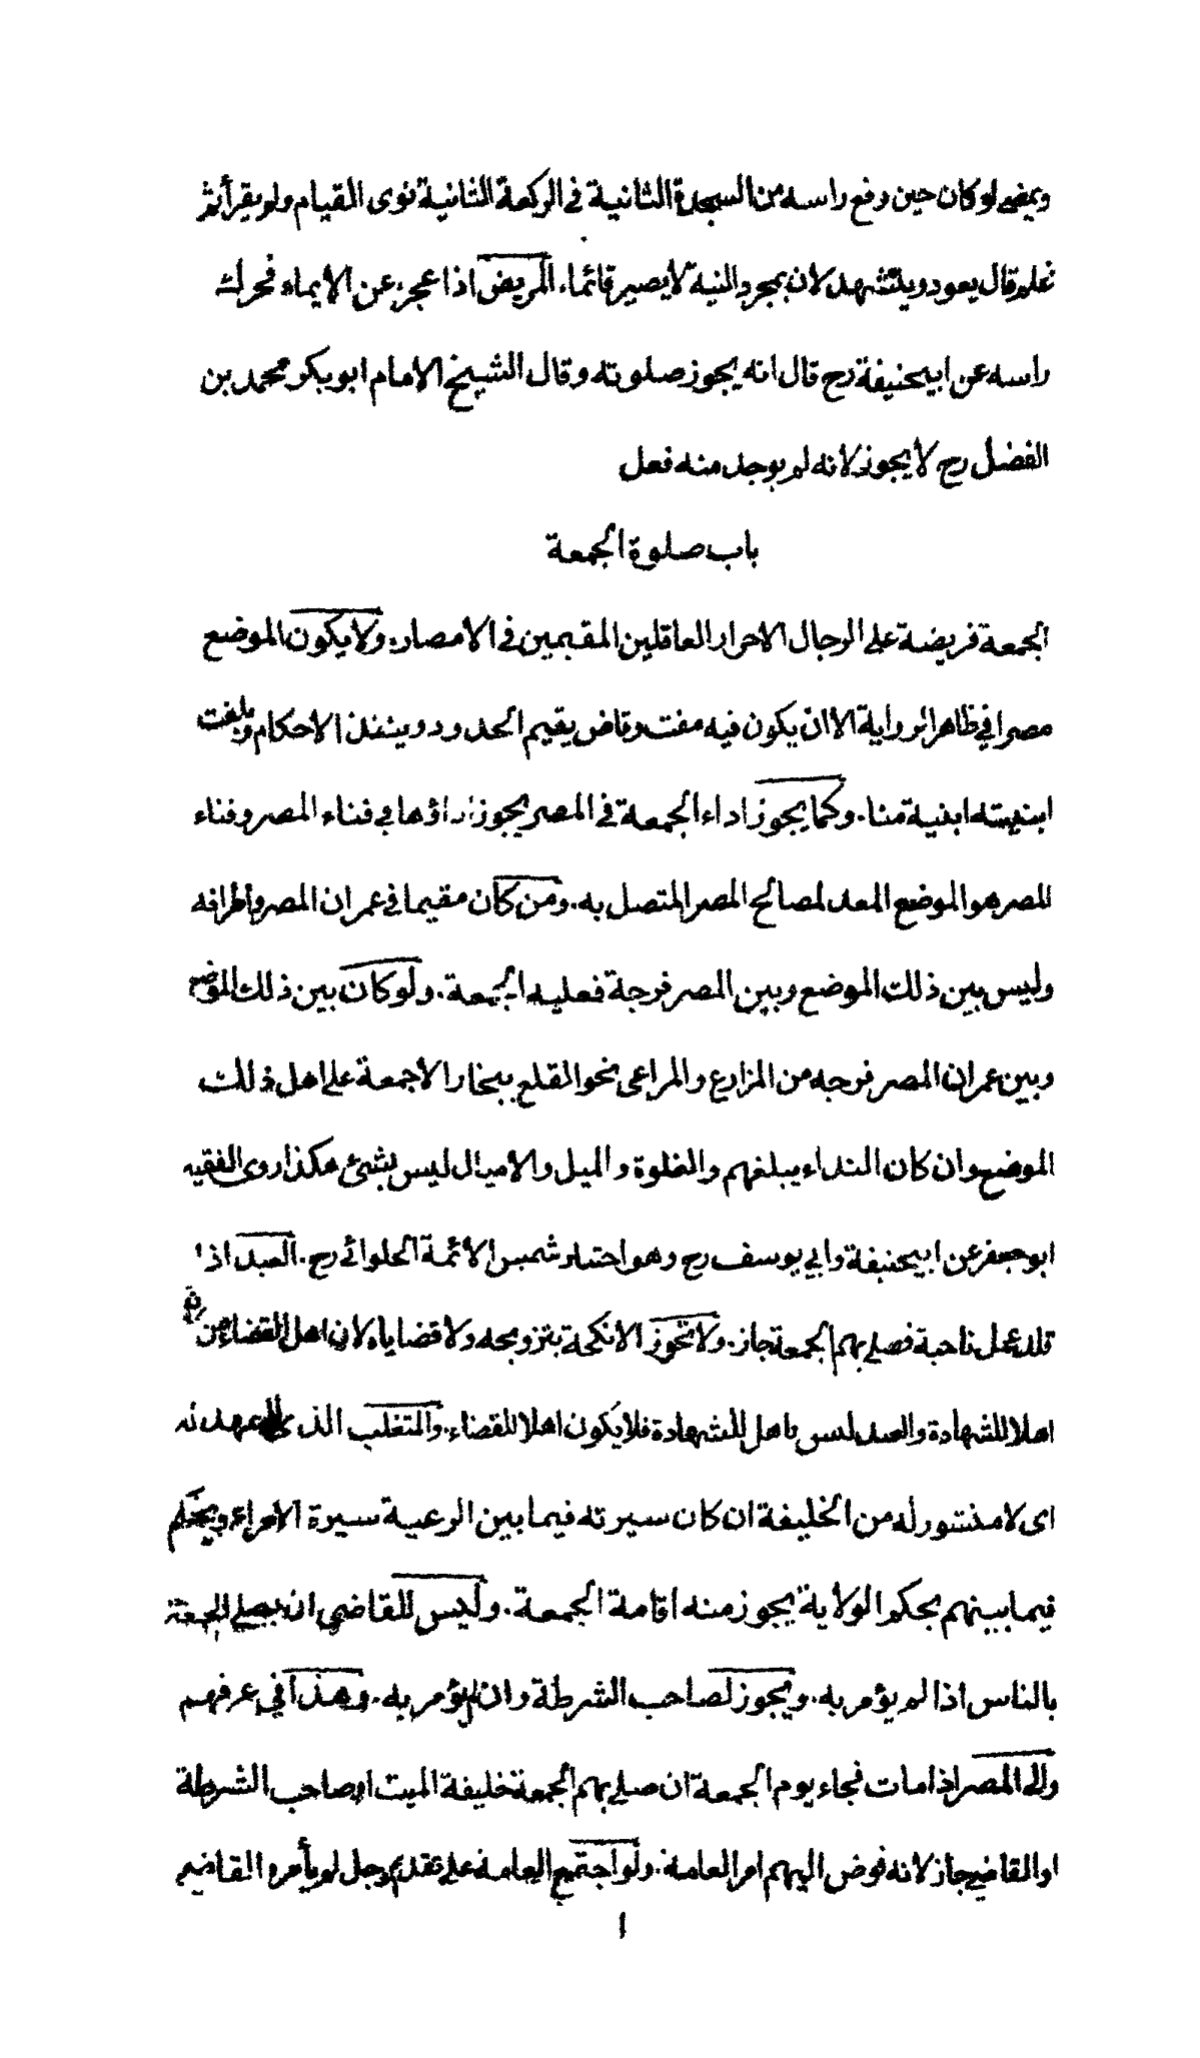 ويمضى لو كان حين رفع راسه من السجدة الثانية في الركعة الثانية نوى القيام ولم يقرأ ثم
علم قال يعود ويتشهد لان بمجرد النية لا يصير قائما. المريض اذا عجز عن الايماء فحرك
راسه عن ابيحنيفة رح قال انه يجوز صلوته وقال الشيخ الامام ابو بكر محمد بن
الفضل رح لا يجوز لانه لم يوجد منه فعل
باب صلوة الجمعة
الجمعة فريضة على الرجال الاحرار العاقلين المقيمين في الامصار. ولا يكون الموضع
مصرا في ظاهر الرواية الا ان يكون فيه مفت وقاض يقيم الحدود وينفذ الاحكام وبلغت
ابنيته ابنية منا. وكما يجوز اداء الجمعة في المصر يجوز اداؤها في فناء المصر وفناء
المصر هو الموضع المعد لمصالح المصر المتصل به. ومن كان مقيما في عمران المصر واطرافه
وليس بين ذلك الموضع وبين المصر فرجة فعليه الجمعة. ولو كان بين ذلك الموضع
وبين عمران المصر فرجه من المزارع والمراعى نحو القلع ببخارا لا جمعة على اهل ذلك
الموضع وان كان النداء يبلغهم والغلوة والميل والاميال ليس بشئ هكذا روى الفقيه
ابو جعفر عن ابيحنيفة وابي يوسف رح وهو اختيار شمس الأئمة الحلوائي رح. العبد اذا
قلد عمل ناحية فصلى بهم الجمعة جاز. ولا تجوز الانكحة بتزويجه ولا قضاياه لان اهل القضاء من
اهلا للشهادة والعبد ليس باهل للشهادة فلا يكون اهلا للقضاء. والمتغلب الذى لا عهد له
اى لا منشور له من الخليفة ان كان سيرته فيما بين الرعية سيرة الامراء ويحكم
فيما بينهم بحكم الولاية يجوز منه اقامة الجمعة. وليس للقاضي ان يصلى الجمعة
بالناس اذا لم يؤمر به. ويجوز لصاحب الشرطة وان لم يؤمر به. وهذا في عرفهم
والى المصر اذا مات فجاء يوم الجمعة ان صلى بهم الجمعة خليفة الميت او صاحب الشرطة
او القاضي جاز لانه فوض اليهم امر العامة. ولو اجتمع العامة على تقديم رجل لم يأمره القاضي
ا